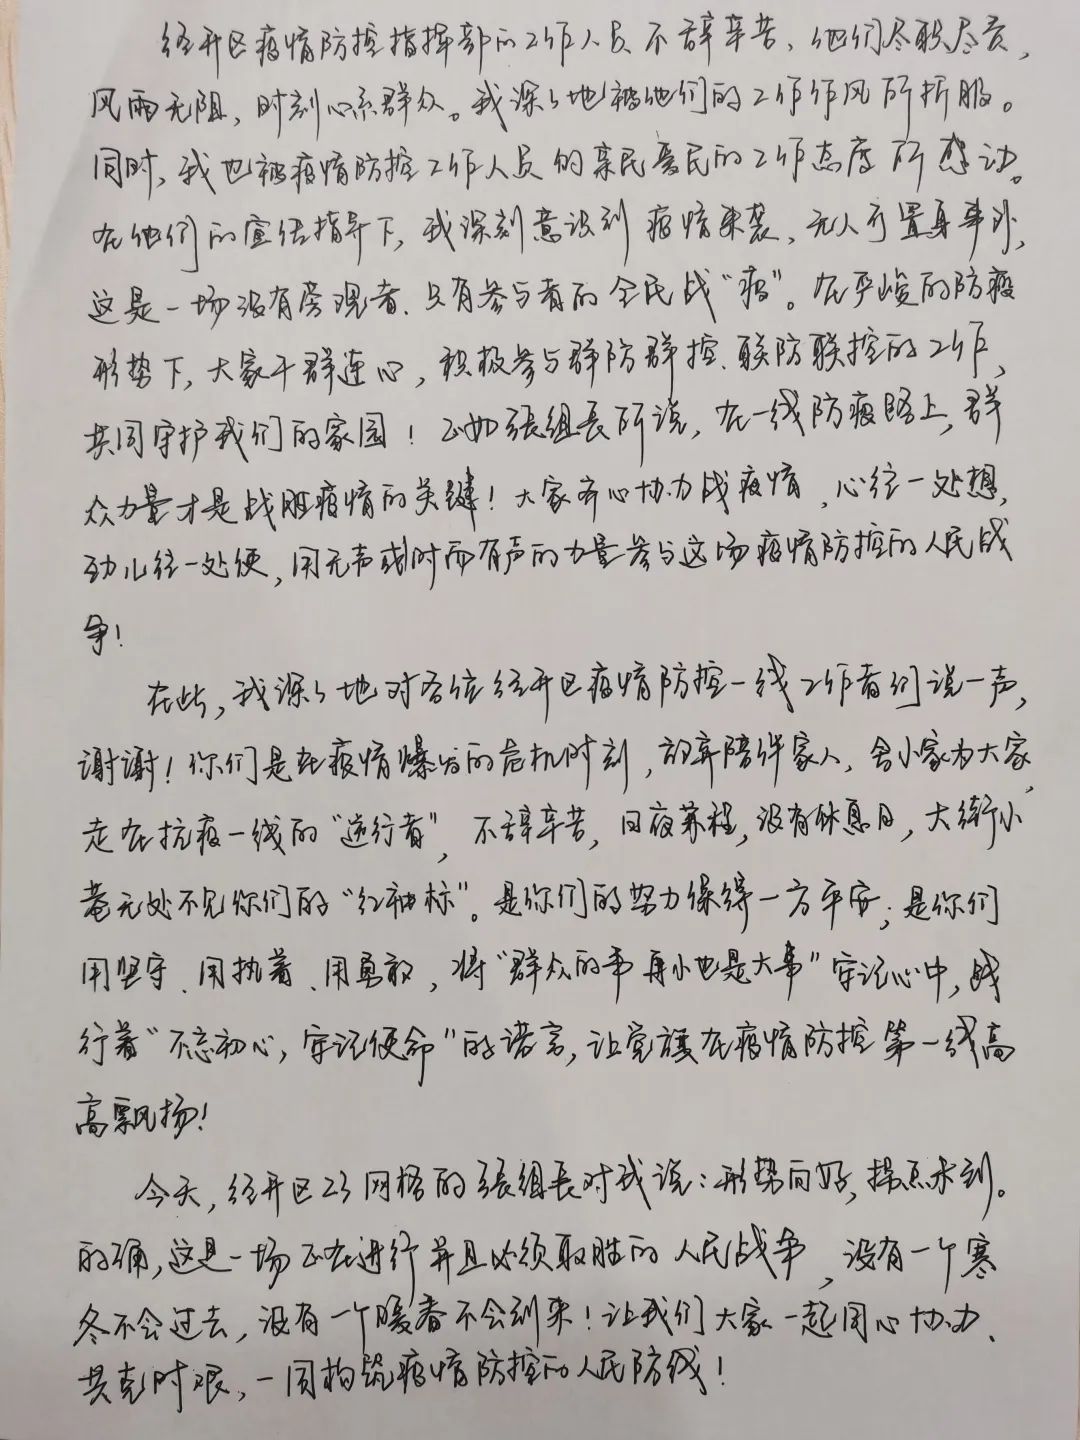 经开区疫情防控指挥部的工作人员不辞辛苦、他们尽职尽责,
风雨无阻,时刻心系群众。我深深地被他们的工作作风所折服。
同时,我也被疫情防控工作人员的亲民爱民的工作态度所感动。
在他们的宣传指导下,我深刻意识到疫情来袭、无人可置身事外,
这是一场没有旁观者、只有参与者的全民战“疫”。在严峻的防疫
形势下,大家干群连心,积极参与群防群控、联防联控的工作,
共同守护我们的家园!正如张组长所说,在一线防疫路上,群
众力量才是战胜疫情的关键!大家齐心协力战疫情,心往一处想,
劲儿往一处使,用无声或时而有声的力量参与这场疫情防控的人民战
争!
在此,我深深地对各位经开区疫情防控一线工作者们说一声,
谢谢!你们是在疫情爆发的危机时刻,放弃陪伴家人,舍小家为大家,
走在抗疫一线的“逆行者”,不辞辛苦,日夜兼程,没有休息日,大街小
巷无处不见你们的“红袖标”。是你们的努力保得一方平安;是你们
用坚守、用执着、用勇敢,将“群众的事再小也是大事”牢记心中,践
行着“不忘初心,牢记使命”的诺言,让党旗在疫情防控第一线高
高飘扬!
今天,经开区23网格的张组长对我说:形势向好,拐点未到。
的确,这是一场正在进行并且必须取胜的人民战争,没有一个寒
冬不会过去,没有一个暖春不会到来!让我们大家一起同心协力、
共克时艰,一同构筑疫情防控的人民防线!